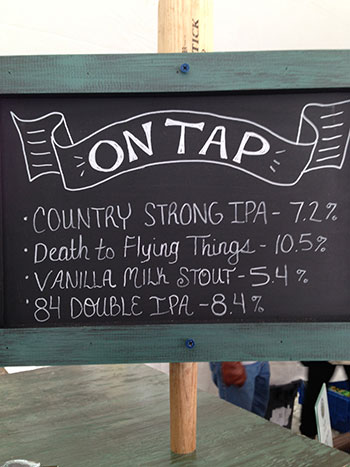 STICK
ON TAP
· COUNTRY STRONG IPA - 7.2%
· Death to Flying Things - 10.5%
· VANILLA MILK STOUT - 5.4%
· '84 DOUBLE IPA - 8.4%